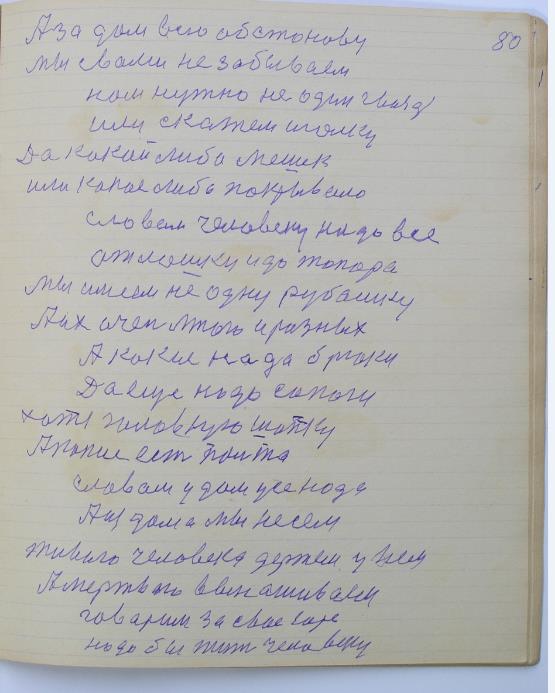 80
А за дом всю обстонову
мы свами не забываем
нам нужно не один гвозд
или скажем иголку
Да какой либа мешик
или какое либа покрывало
словам человеку надо все
от ложки идо топора
мы имеем не одну рубашку
А их очен много иразных
А какие нада брюки
Да еще надо сапоги
хотя головную шапку
А попе ест
словам удом все нада
А из дома мы несем
живого человека держем у
А мертвого вынашиваем
говарим за свое горе
надо бы жит человеку